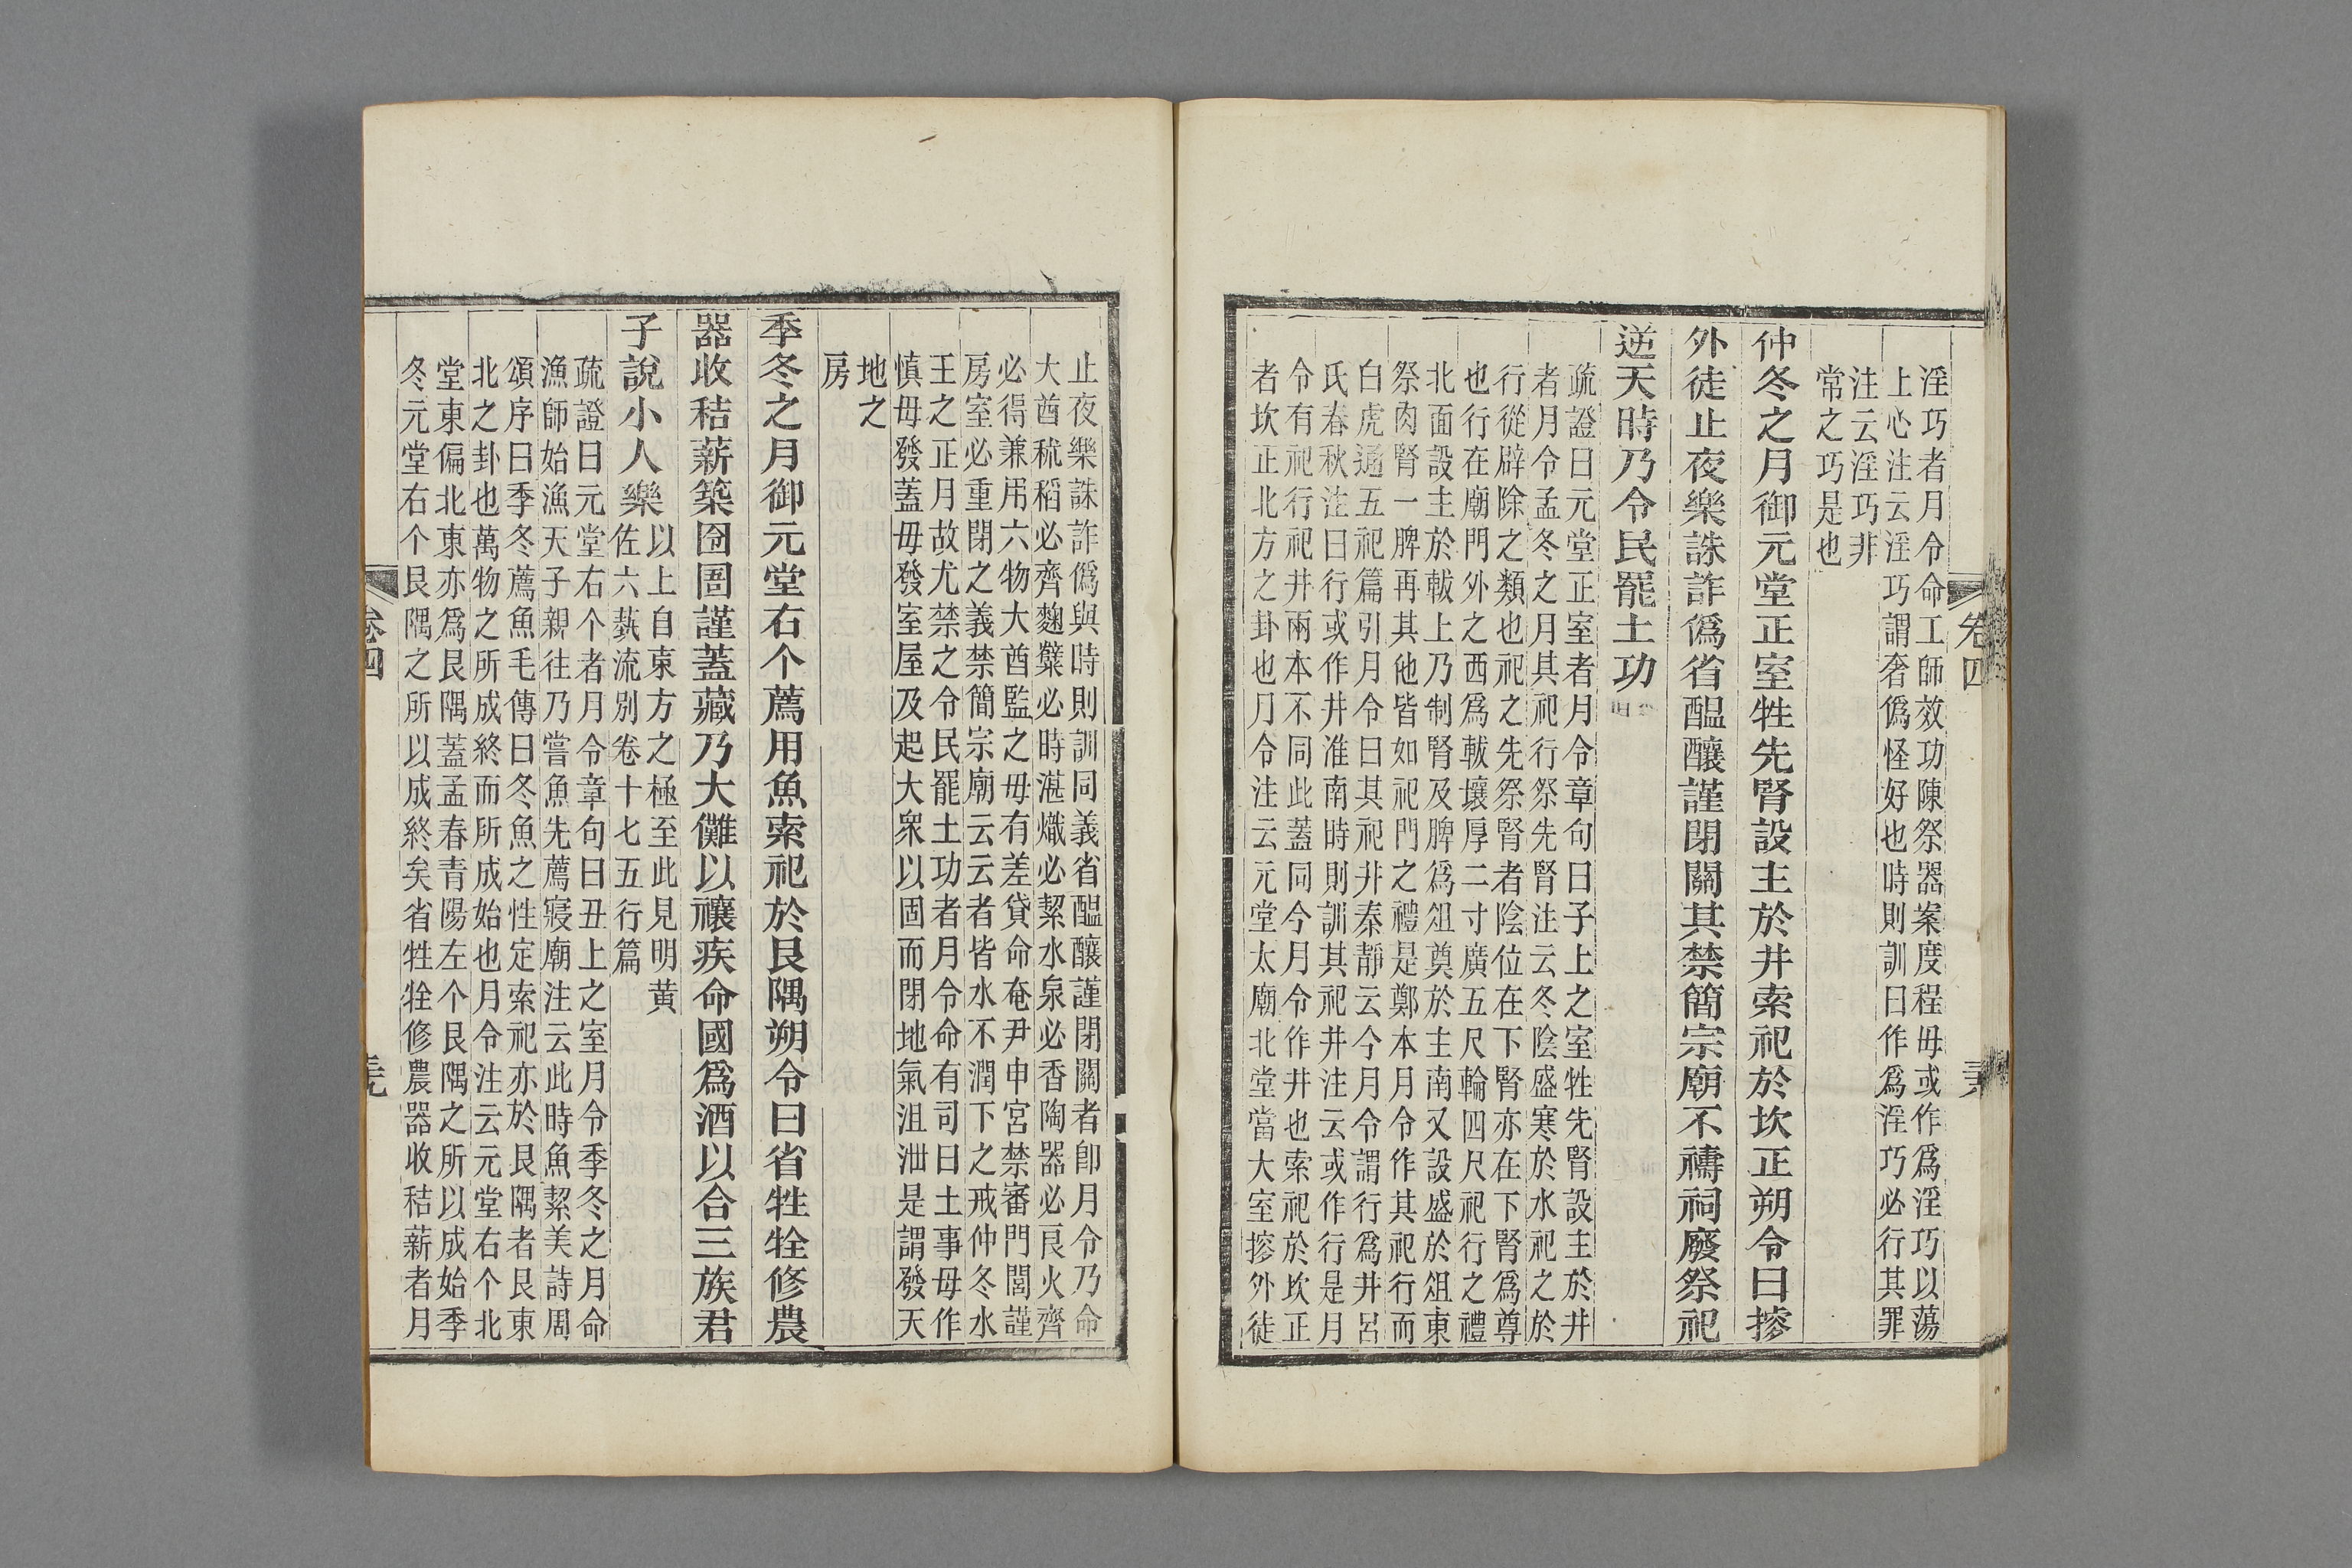 淫巧者月令命工師效功陳祭器案度程毋或作爲淫巧以蕩
上心注云淫巧謂奢僞怪好也時則訓曰作爲淫巧必行其罪
注云淫巧非
常之巧是也
仲冬之月御元堂正室牲先腎設主於井索祀於坎正朔令曰摻
外徒止夜樂誅詐僞省醞釀謹閉關其禁簡宗廟不禱祠廢祭祀
逆天時乃令民罷土功
疏證曰元堂正室者月令章句曰子上之室牲先腎設主於井
者月令孟冬之月其祀行祭先腎注云冬陰盛寒於水祀之於
行從辟除之類也祀之先祭腎者陰位在下腎亦在下腎爲尊
也行在廟門外之西爲軷壤厚二寸廣五尺輪四尺祀行之禮
北面設主於軷上乃制腎及脾爲俎奠於主南又設盛於俎東
祭肉腎一脾再其他皆如祀門之禮是鄭本月令作其祀行而
白虎通五祀篇引月令曰其祀井秦靜云今月令謂行爲井呂
氏春秋注曰行或作井淮南時則訓其祀井注云或作行是月
令有祀行祀井兩本不同此蓋同今月令作井也索祀於坎正
者坎正北方之卦也月令注云元堂太廟北堂當大室摻外徒
卷四
止夜樂誅詐僞與時則訓同義省醞釀謹閉關者卽月令乃命
大酋秫稻必齊麴糱必時湛熾必絜水泉必香陶器必良火齊
必得兼用六物大酋監之毋有差貸命奄尹申宮禁審門閭謹
房室必重閉之義禁簡宗廟云云者皆水不潤下之戒仲冬水
王之正月故尤禁之令民罷土功者月令命有司曰土事毋作
慎毋發蓋毋發室屋及起大衆以固而閉地氣沮泄是謂發天
地之
房
季冬之月御元堂右个薦用魚索祀於艮隅朔令曰省牲牷修農
器收秸薪築囹圄謹蓋藏乃大儺以禳疾命國爲酒以合三族君
子說小人樂
以上自東方之極至此見明黃
佐六蓺流別卷十七五行篇
疏證曰元堂右个者月令章句曰丑上之室月令季冬之月命
漁師始漁天子親往乃嘗魚先薦寢廟注云此時魚絜美詩周
頌序曰季冬薦魚毛傳曰冬魚之性定索祀亦於艮隅者艮東
北之卦也萬物之所成終而所成始也月令注云元堂右个北
堂東偏北東亦爲艮隅蓋孟春青陽左个艮隅之所以成始季
冬元堂右个艮隅之所以成終矣省牲牷修農器收秸薪者月
卷四